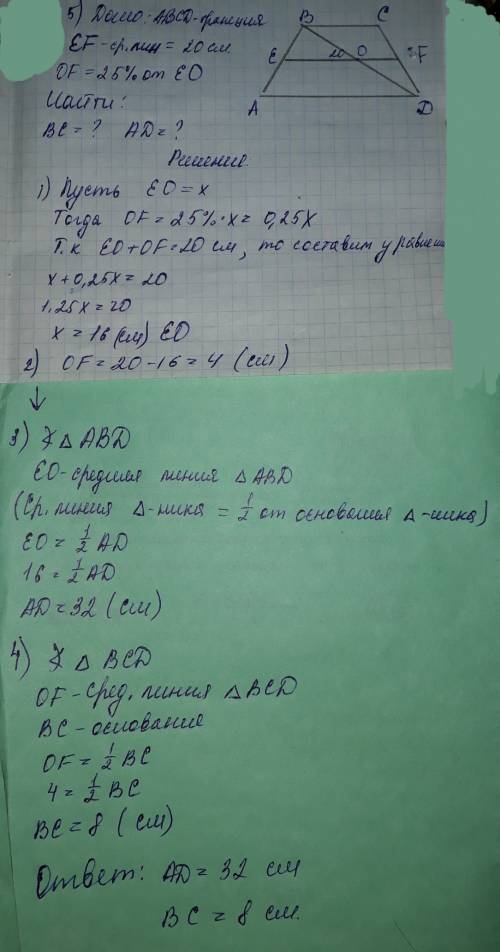 5) Дано: ABCD-трапеция
EF-ср.лин = 20 см
OF = 25% от EO
Найти:
BC = ? AD = ?
B C
E 20 O F
A D
Решение
1) Пусть EO = x
Тогда OF = 25%·x = 0,25x
Т.к EO+OF=20 см, то составим уравнен
x+0,25x = 20
1,25x = 20
x = 16 (см) EO
2) OF = 20-16 = 4 (см)
↓
3) △ ABD
EO-средняя линия △ ABD
(Ср. линия △-ника = 1/2 от основания △-ника)
EO = 1/2 AD
16 = 1/2 AD
AD = 32 (см)
4) △ BCD
OF-сред. линия △ BCD
BC-основание
OF = 1/2 BC
4 = 1/2 BC
BC = 8 (см)
Ответ: AD = 32 см
BC = 8 см.